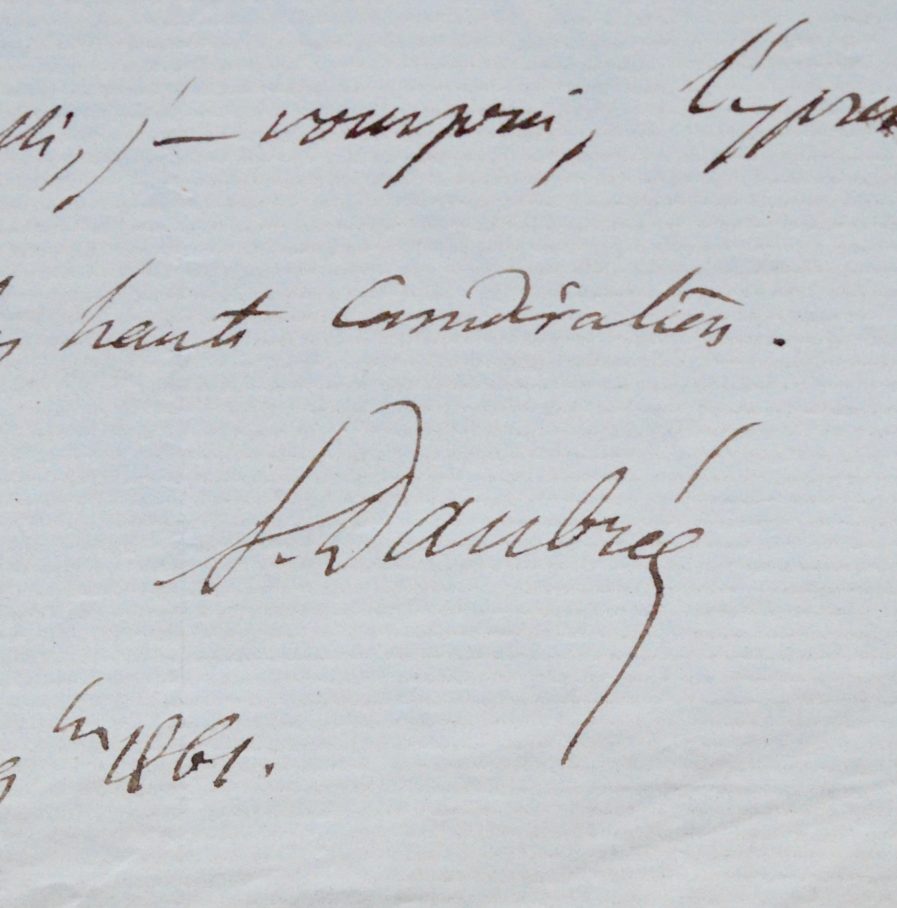 je vous prie, l'expres
haute considération.
A. Daubrée
9bre 1861.